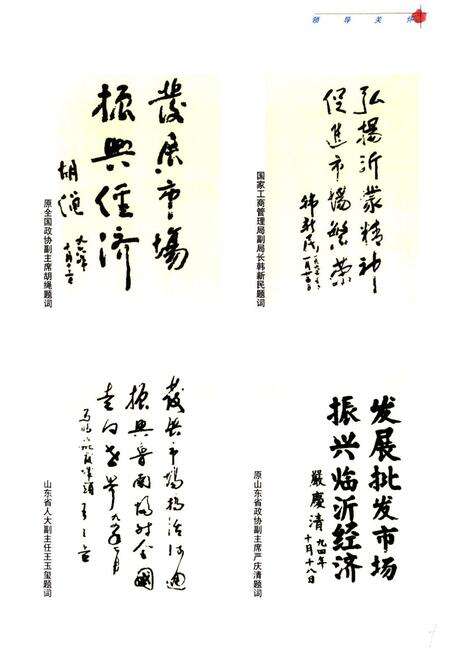 领导关怀
發展市場
振興经济
胡绳
原全国政协副主席胡绳题词
弘揚沂蒙精神
促進市場繁荣
韩新民
国家工商管理局副局长韩新民题词
發展市場搞活流通
振興魯南
走向世界
山东省人大副主任王玉玺题词
发展批发市场
振兴临沂经济
嚴慶清
九四年
十月十八日
原山东省政协副主席严庆清题词